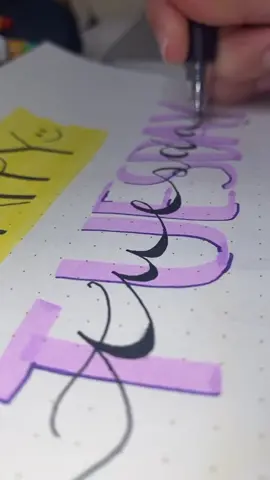 PPY
TUESDAY
tuesda